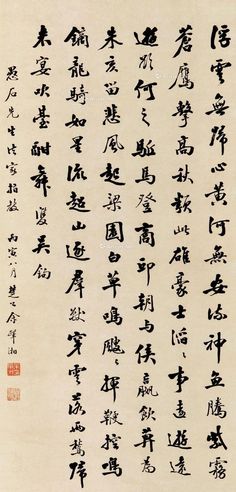 浮雲無歸心黃河無安流神魚騰紫霧
蒼鷹擊高秋類此雄豪士滔滔事遠遊遠
遊欲何之驅馬登商邱朝与侯嬴飲莫為
朱亥留悲風起梁園白草鳴颼颼揮鞭控鳴
鏑龍騎如星流超山逐群獸穿雲落兩鶖歸
来宴吹臺酣舞雙吳鉤
愚石先生法家指教
丙寅八月楚人余肇湘